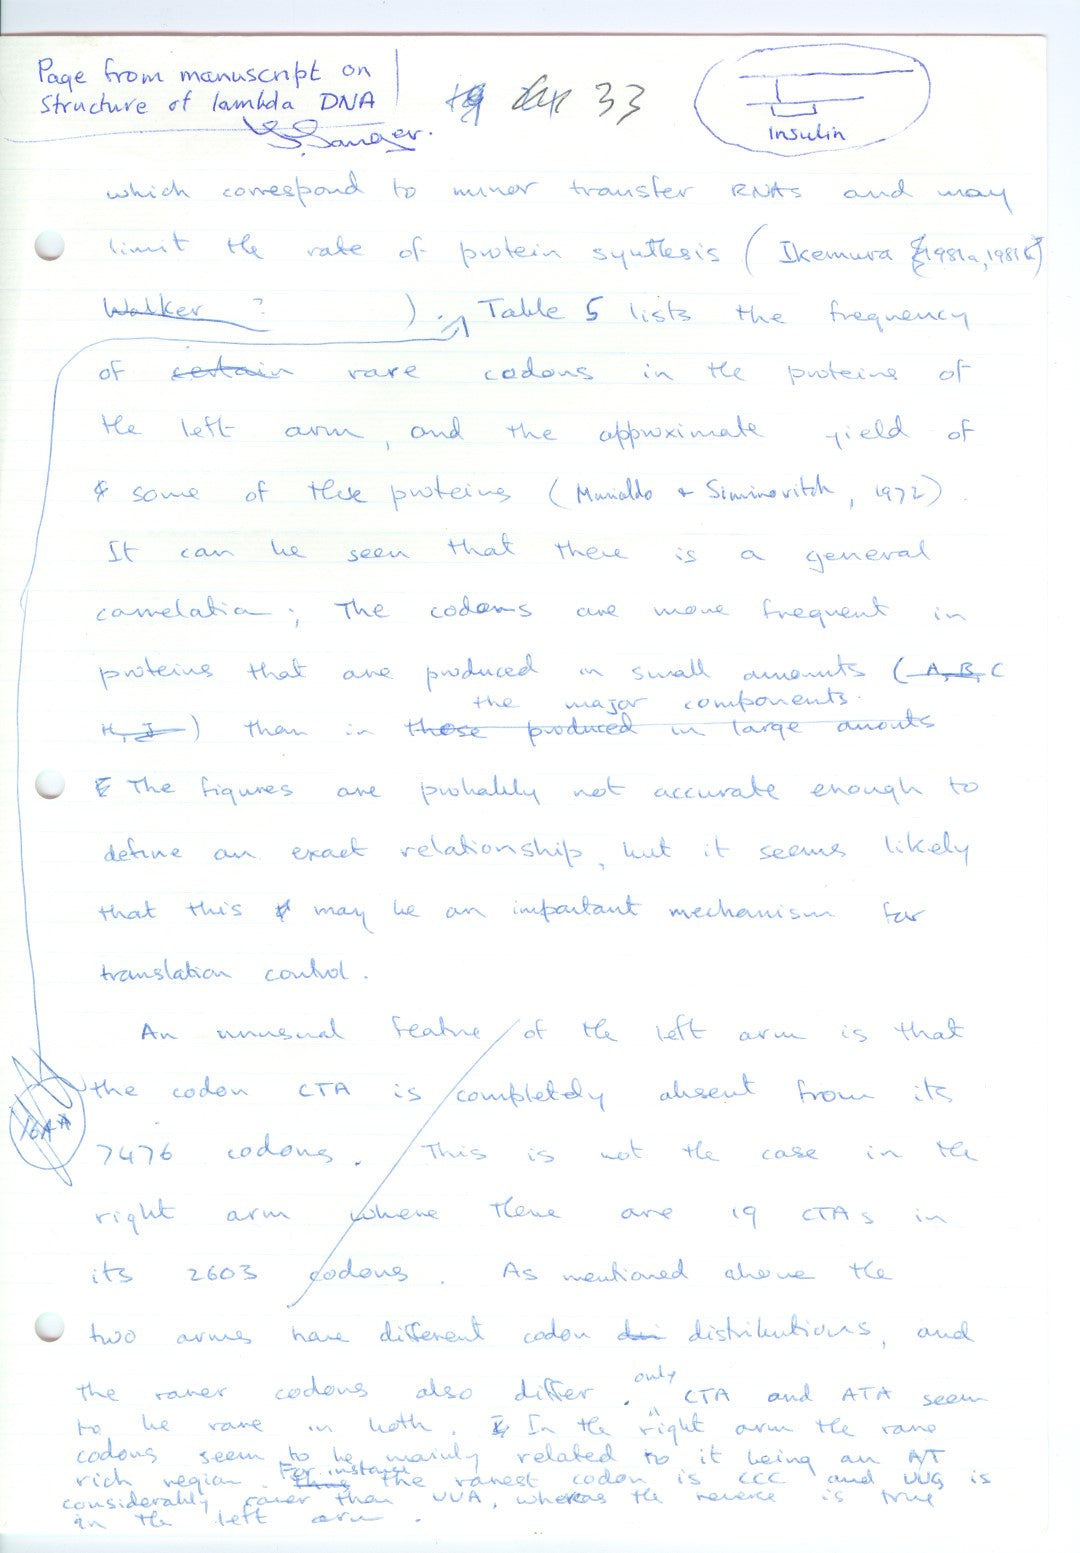 Page from manuscript on
structure of lambda DNA
F. Sanger.
33
insulin
which correspond to minor transfer RNAs and may
limit the rate of protein synthesis (Ikemura {1981a, 1981b}
Walker ? ). Table 5 lists the frequency
of certain rare codons in the proteins of
the left arm, and the approximate yield of
some of these proteins (Murialdo + Siminovitch, 1972).
It can be seen that there is a general
correlation; The codons are more frequent in
proteins that are produced in small amounts (A, B, C
the major components.
H, J) than in those produced in large amouts
The figures are probably not accurate enough to
define an exact relationship, but it seems likely
that this may be an important mechanism for
translation control.
An unusual feature of the left arm is that
the codon CTA is completely absent from its
16A*
7476 codons. This is not the case in the
right arm where there are 19 CTAs in
its 2603 codons. As mentioned above the
two arms have different codon dis distributions, and
the rarer codons also differ. only CTA and ATA seem
to be rare in both. In the right arm the rare
codons seem to be mainly related to it being an A/T
rich region. For instance the rarest codon is CCC and UUG is
considerably rarer than UUA, whereas the reverse is true
in the left arm.